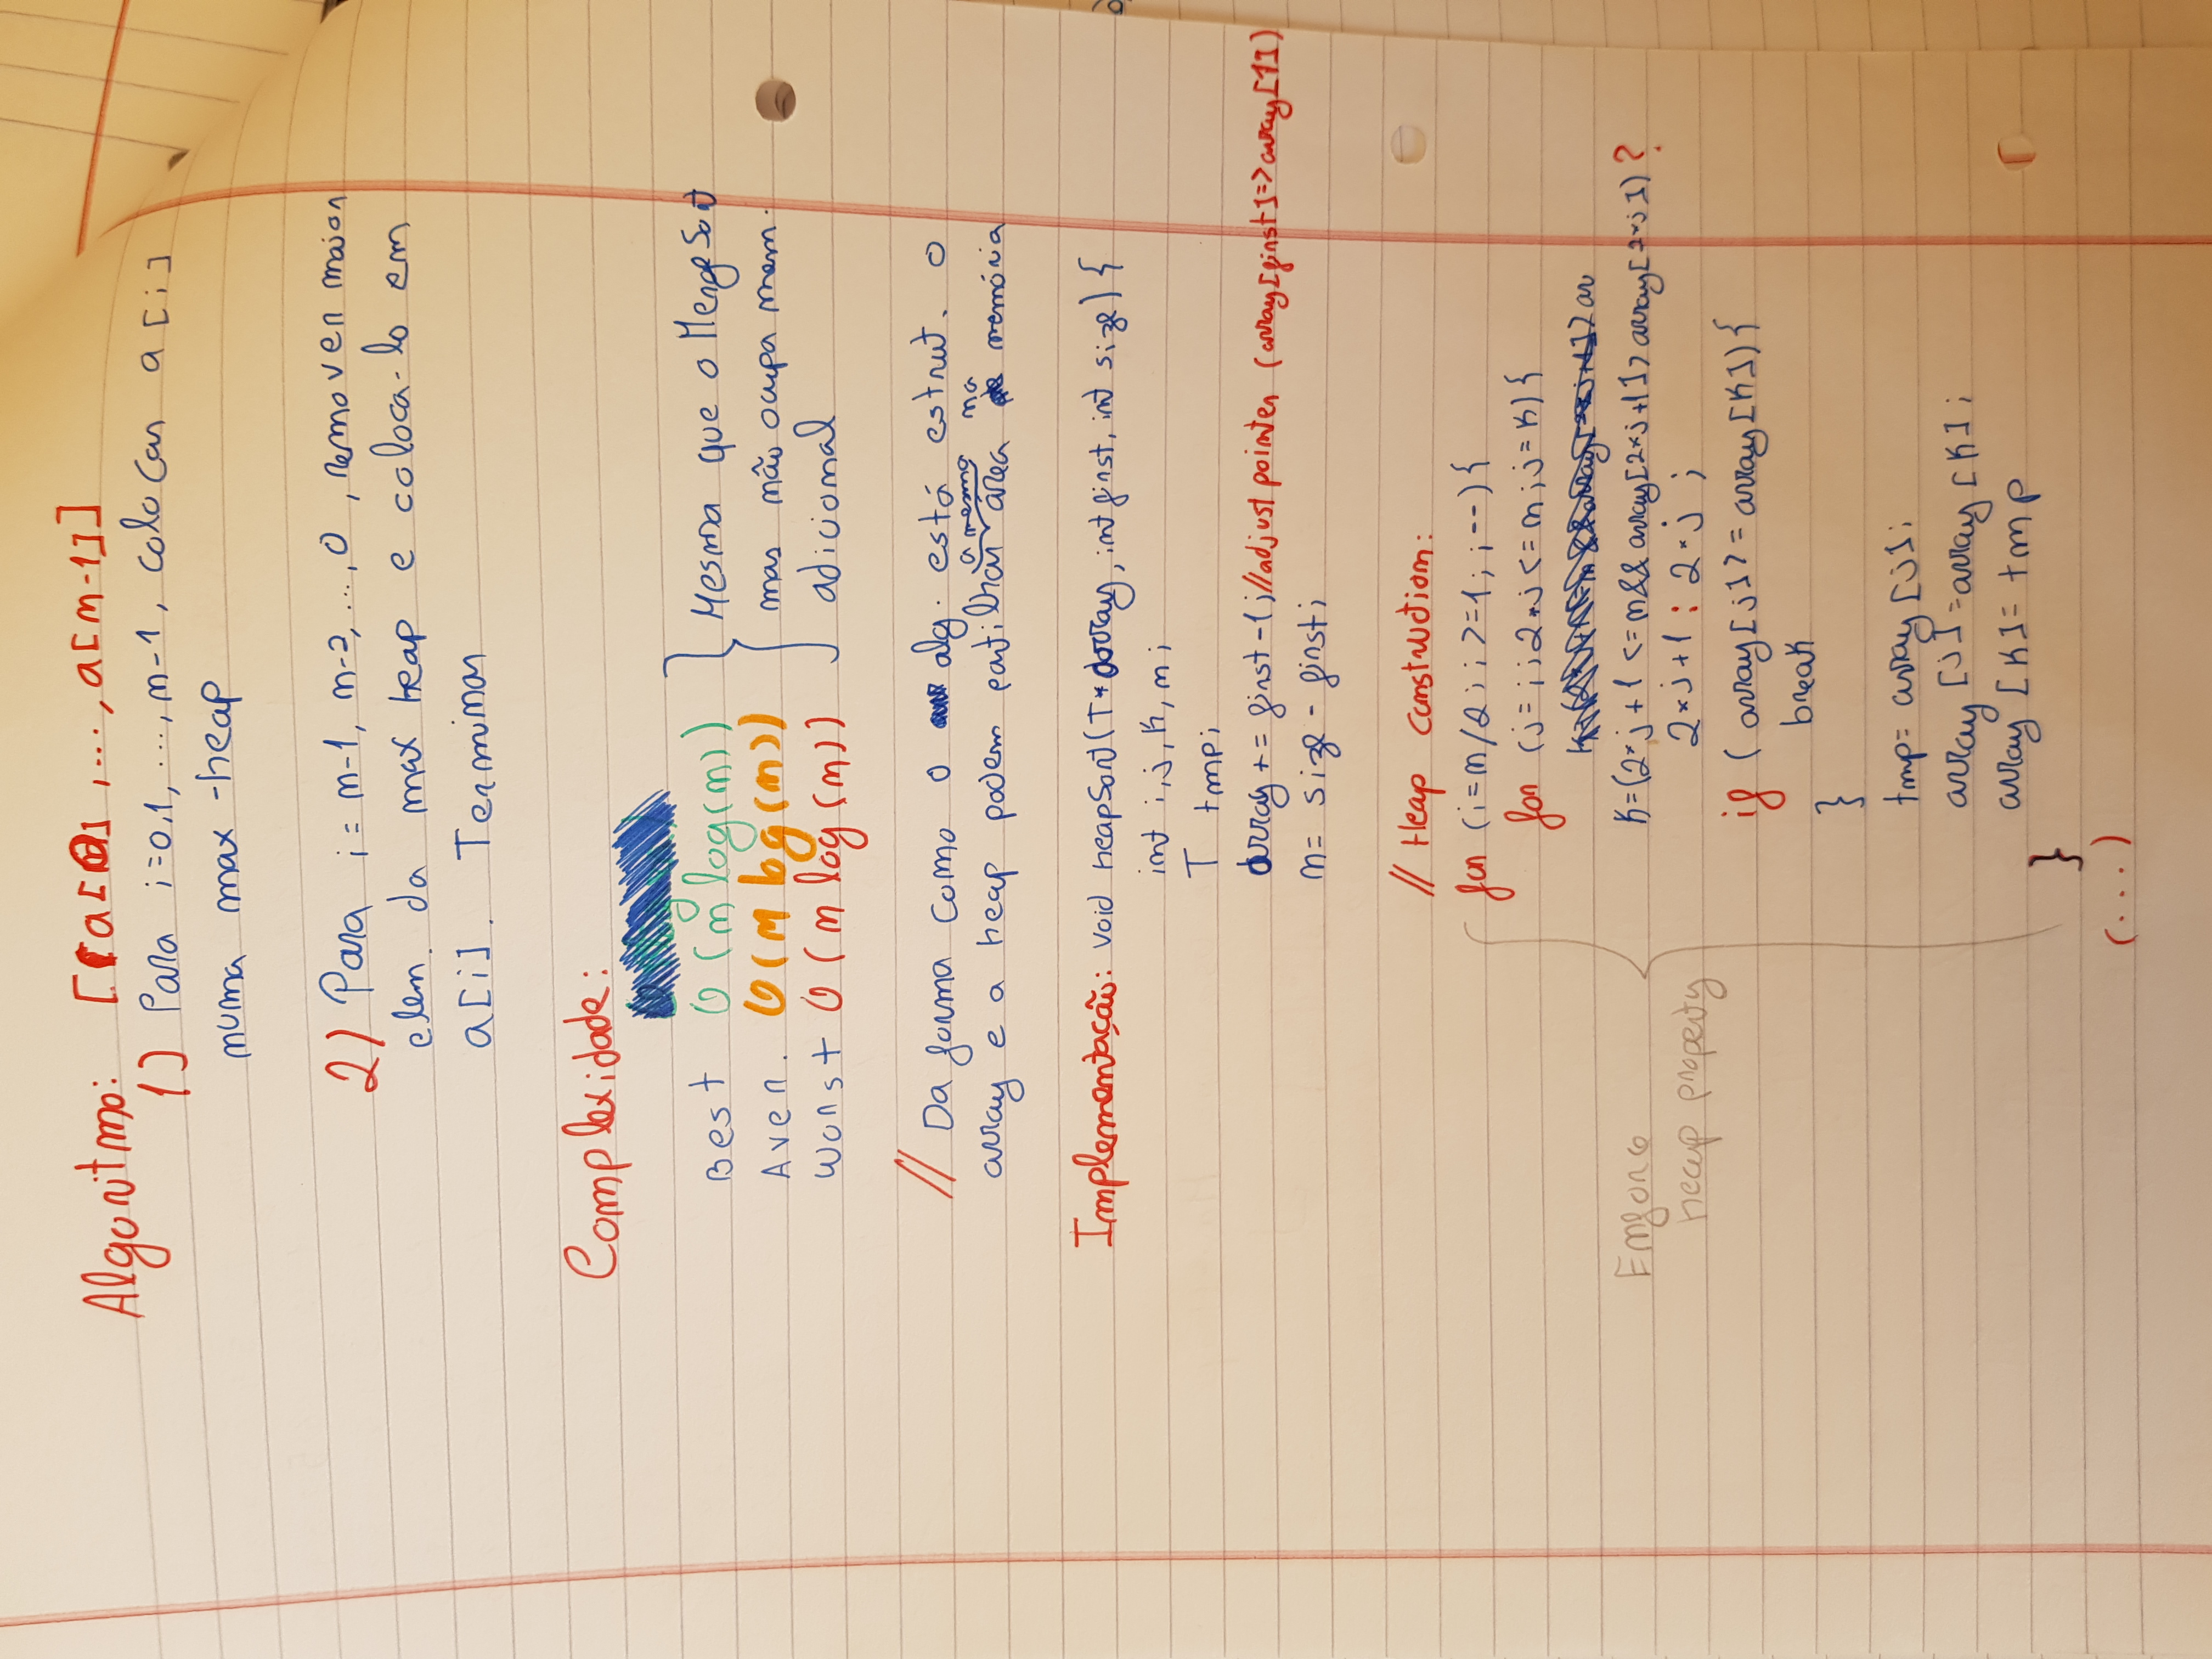 Algoritmo: [a[0], ..., a[n-1]]
1) Para i=0,1, ..., n-1, colocar a[i]
numa max-heap
2) Para i = n-1, n-2, ..., 0, remover maior
elem. da max heap e coloca-lo em
a[i]. Terminar
Complexidade:
Best O(n log(n))
Aver. O(n log(n))
Worst O(n log(n))
Mesma que o MergeSort
mas não ocupa mem.
adicional
// Da forma como o alg. está estrut. o
array e a heap podem partilhar a mesma área na memória
Implementação: void heapSort(T* array, int first, int size) {
int i,j,k,n;
T tmp;
array += first-1; //adjust pointer (array[first]=>array[1])
n= size - first;
// Heap construction:
for (i=n/2; i>=1; i--){
for (j=i;2*j<=n;j=k){
k=(2*j+1<=n&&array[2*j+1]>array[2*j])?
2*j+1 : 2*j ;
Enforce
heap property
if (array[j]>=array[k]){
break
}
tmp= array[j];
array[j]=array[k];
array[k]=tmp
}
(...)